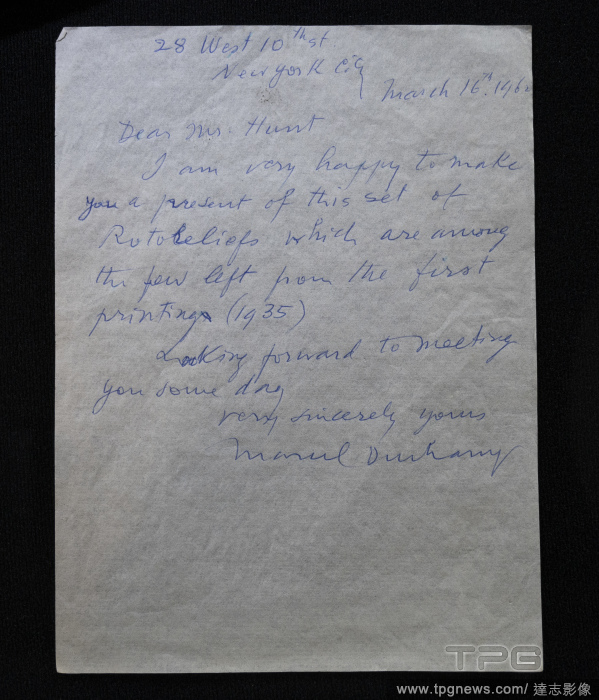 28 West 10th st.
New York City
March 16th, 196
Dear Mr. Hunt
I am very happy to make
you a present of this set of
Rotoreliefs which are among
the few left from the first
printing (1935)
Looking forward to meeting
you some day
very sincerely yours
Marcel Duchamp
TPG
www.tpgnews.com/達志影像